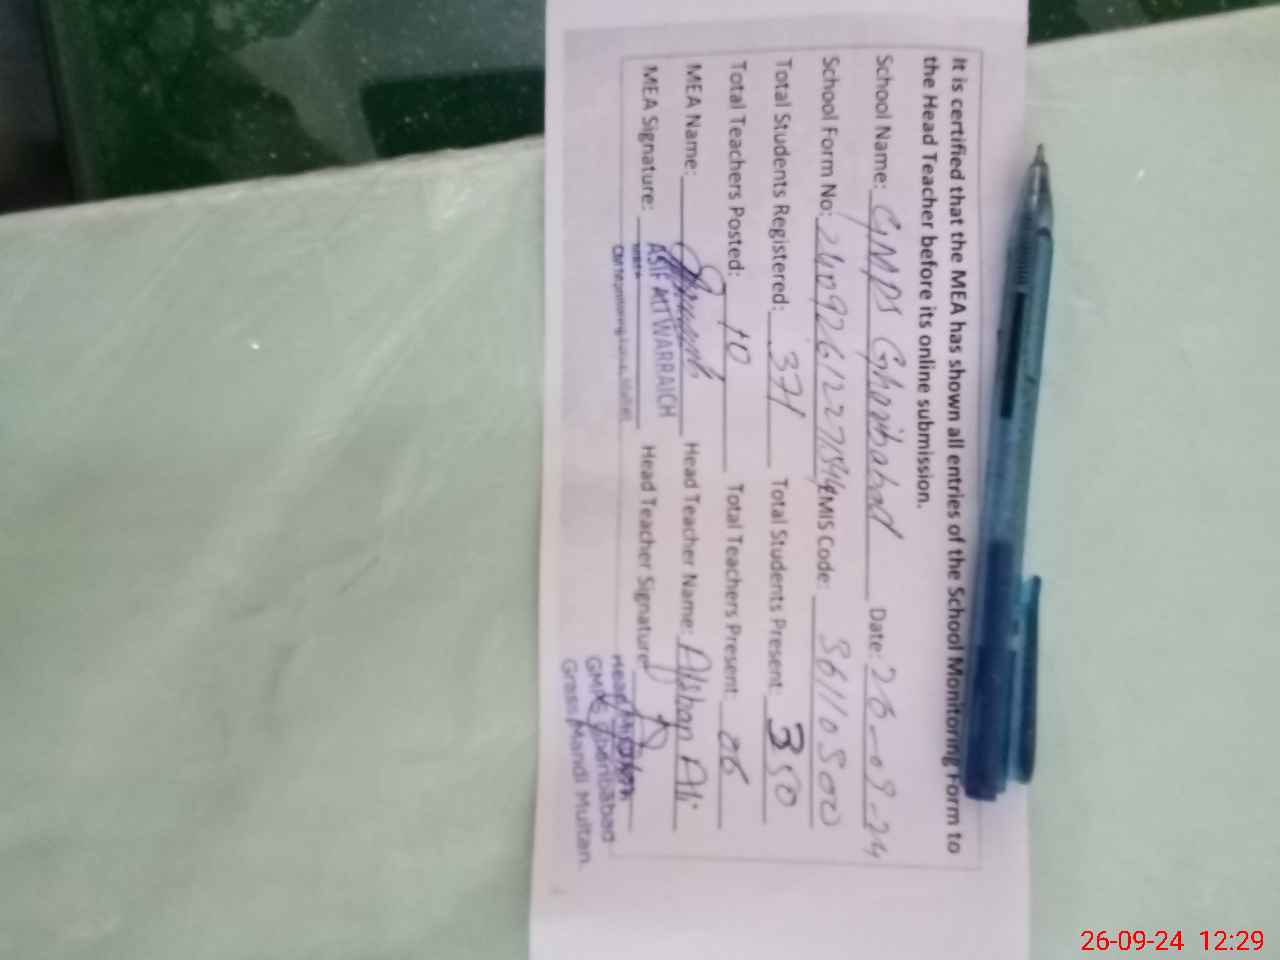 It is certified that the MEA has shown all entries of the School Monitoring Form to
the Head Teacher before its online submission.
School Name: GMPS Gharibabad Date: 26-09-24
School Form No: EMIS Code: 36110500
Total Students Registered: 371 Total Students Present: 350
Total Teachers Posted: 10 Total Teachers Present 06
MEA Name: Head Teacher Name: Afshan Ali
MEA Signature: Head Teacher Signature
ASIF ALI WARRAICH
Head
GMPS Gharibabad
Grass Mandi Multan.
26-09-24 12:29